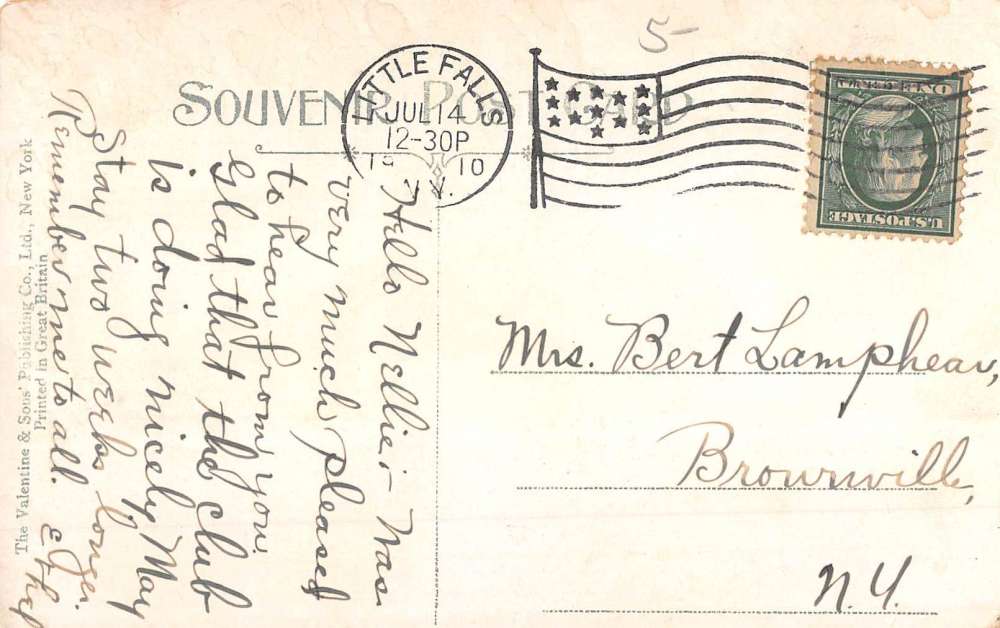 5-
SOUVENIR POST CARD
LITTLE FALLS
JUL 14
12-30P
1910
N.Y.
ONE CENT
U.S. POSTAGE
Hello Nellie:- Was
very much pleased
to hear from you.
Glad that the club
is doing nicely May
Stay two weeks longer.
Remember me to all. Ethel
The Valentine & Sons' Publishing Co., Ltd., New York
Printed in Great Britain
Mrs. Bert Lamphear,
Brownville,
N.Y.